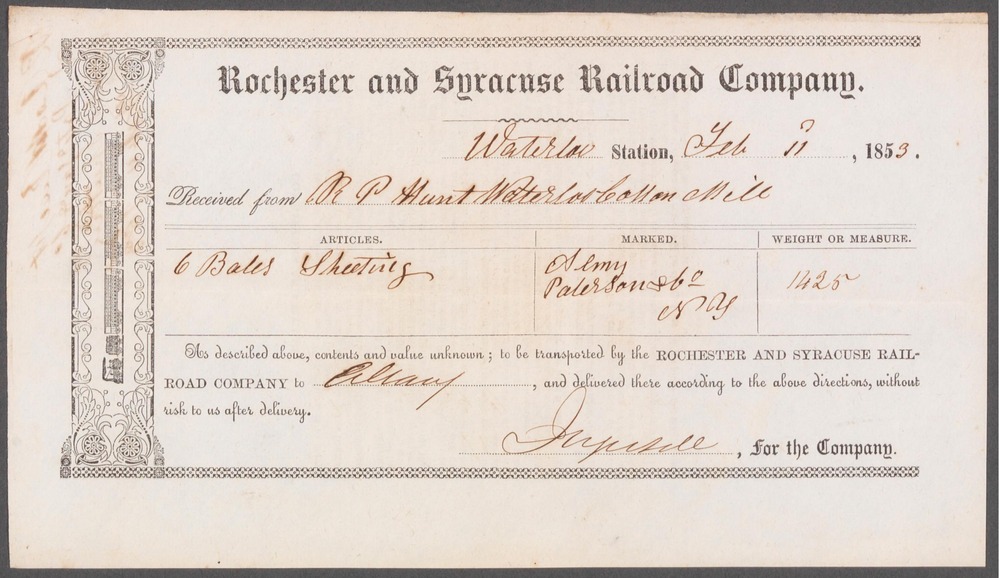 Rochester and Syracuse Railroad Company.
Waterloo Station, Feb 11, 1853.
Received from R P Hunt Waterloo Cotton Mill
ARTICLES. MARKED. WEIGHT OR MEASURE.
6 Bales Sheeting
Paterson & Co 1425
N Y
As described above, contents and value unknown; to be transported by the ROCHESTER AND SYRACUSE RAIL-
ROAD COMPANY to Albany, and delivered there according to the above directions, without
risk to us after delivery.
, For the Company.